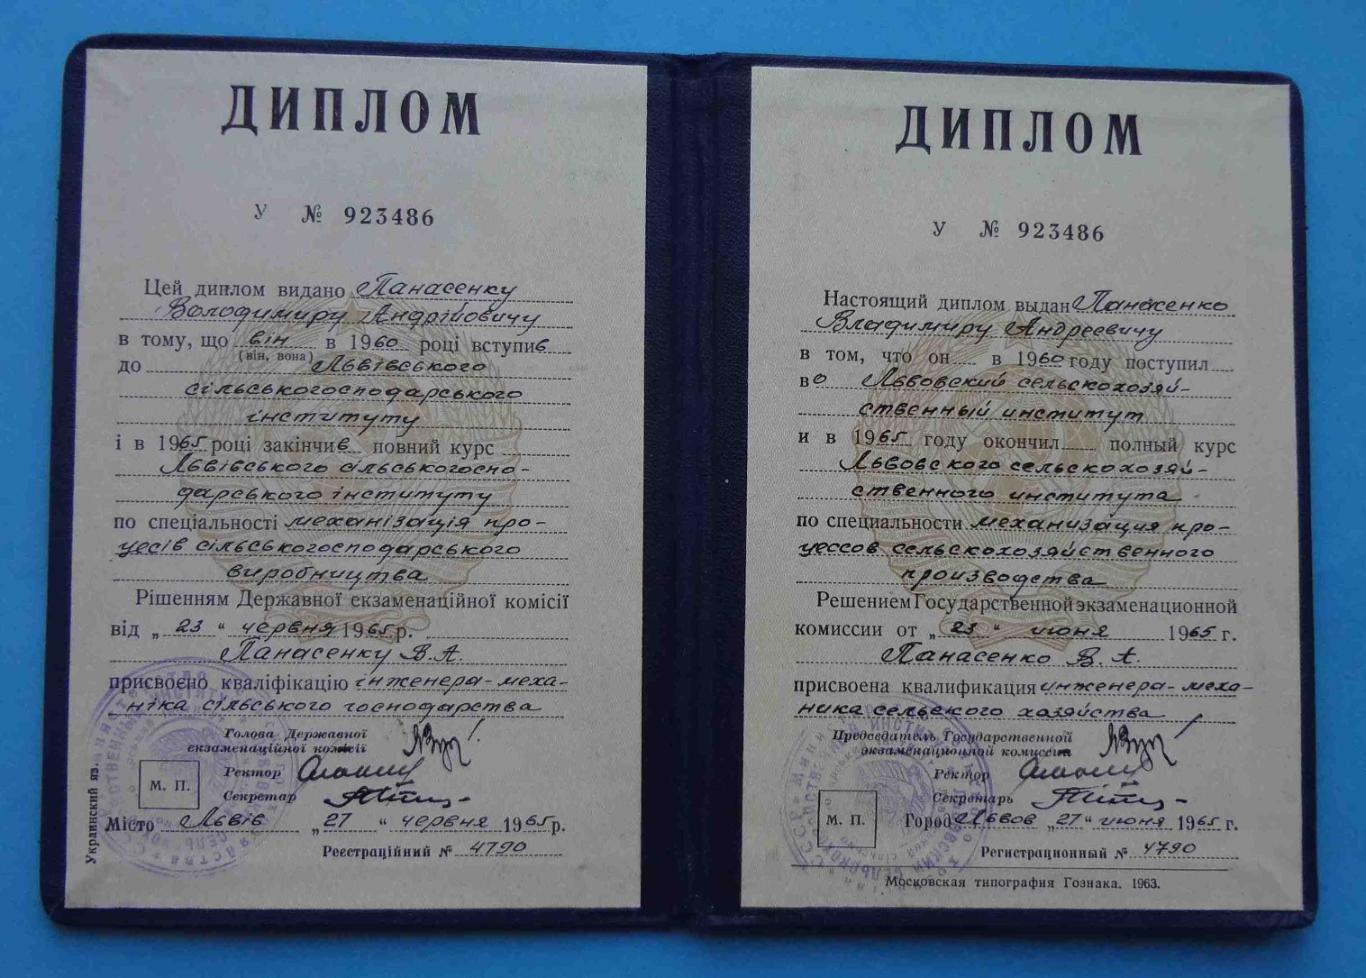 ДИПЛОМ
У № 923486
Цей диплом видано Панасенку
Володимиру Андрійовичу
в тому, що він в 1960 році вступив
(він, вона)
до Львівського
сільськогосподарського
інституту
і в 1965 році закінчив повний курс
Львівського сільськогоспо-
дарського інституту
по спеціальності механізація про-
цесів сільськогосподарського
виробництва
Рішенням Державної екзаменаційної комісії
від „23“ червня 1965 р.
Панасенку В. А.
присвоєно кваліфікацію інженера-меха-
ніка сільського господарства
Голова Державної
екзаменаційної комісії
Ректор
Секретар
М. П.
Місто Львів „27“ червня 1965 р.
Реєстраційний № 4790
Украинский яз.
ДИПЛОМ
У № 923486
Настоящий диплом выдан Панасенко
Владимиру Андреевичу
в том, что он в 1960 году поступил
во Львовский сельскохозяй-
ственный институт
и в 1965 году окончил полный курс
Львовского сельскохозяй-
ственного института
по специальности механизация про-
цессов сельскохозяйственного
производства
Решением Государственной экзаменационной
комиссии от „23“ июня 1965 г.
Панасенко В. А.
присвоена квалификация инженера-меха-
ника сельского хозяйства
Председатель Государственной
экзаменационной комиссии
Ректор
Секретарь
М. П.
Город Львов „27“ июня 1965 г.
Регистрационный № 4790
Московская типография Гознака. 1963.